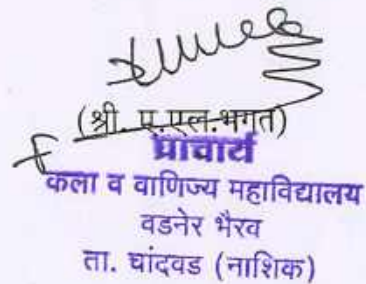 (श्री. ए.एल.भगत)
प्राचार्य
कला व वाणिज्य महाविद्यालय
वडनेर भैरव
ता. चांदवड (नाशिक)